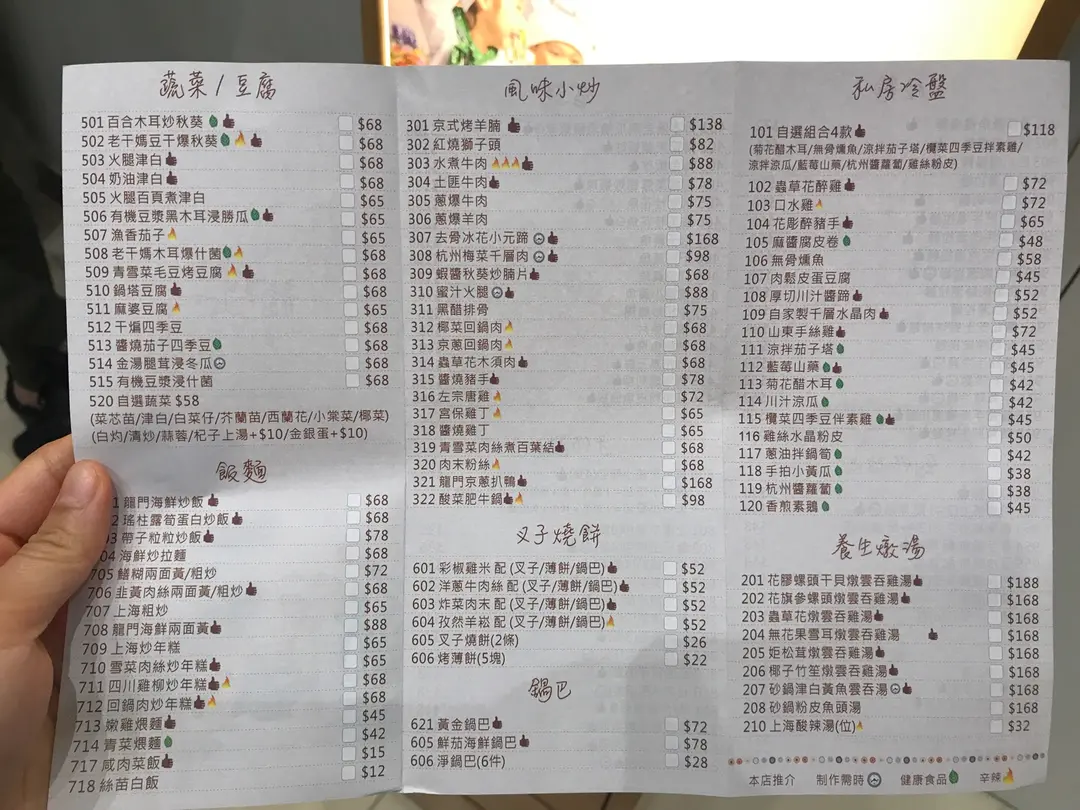 蔬菜 / 豆腐
501 百合木耳炒秋葵 $68
502 老干媽豆干爆秋葵 $68
503 火腿津白 $68
504 奶油津白 $68
505 火腿百頁煮津白 $65
506 有機豆漿黑木耳浸勝瓜 $68
507 漁香茄子 $65
508 老干媽木耳爆什菌 $68
509 青雪菜毛豆烤豆腐 $68
510 鍋塔豆腐 $68
511 麻婆豆腐 $65
512 干煸四季豆 $68
513 醬燒茄子四季豆 $68
514 金湯腿茸浸冬瓜 $68
515 有機豆漿浸什菌 $68
520 自選蔬菜 $58
(菜芯苗/津白/白菜仔/芥蘭苗/西蘭花/小棠菜/椰菜)
(白灼/清炒/蒜蓉/杞子上湯+$10/金銀蛋+$10)
飯麵
1 龍門海鮮炒飯 $68
2 瑤柱露筍蛋白炒飯 $68
03 帶子粒粒炒飯 $78
04 海鮮炒拉麵 $68
705 鱔糊兩面黃/粗炒 $72
706 韭黃肉絲兩面黃/粗炒 $68
707 上海粗炒 $65
708 龍門海鮮兩面黃 $88
709 上海炒年糕 $65
710 雪菜肉絲炒年糕 $68
711 四川雞柳炒年糕 $68
712 回鍋肉炒年糕 $68
713 嫩雞煨麵 $45
714 青菜煨麵 $42
717 咸肉菜飯 $15
718 絲苗白飯 $12
風味小炒
301 京式烤羊腩 $138
302 紅燒獅子頭 $82
303 水煮牛肉 $88
304 土匪牛肉 $78
305 蔥爆牛肉 $75
306 蔥爆羊肉 $75
307 去骨冰花小元蹄 $168
308 杭州梅菜千層肉 $98
309 蝦醬秋葵炒腩片 $68
310 蜜汁火腿 $88
311 黑醋排骨 $75
312 椰菜回鍋肉 $68
313 京蔥回鍋肉 $68
314 蟲草花木須肉 $68
315 醬燒豬手 $78
316 左宗唐雞 $72
317 宮保雞丁 $65
318 醬燒雞丁 $65
319 青雪菜肉絲煮百葉結 $68
320 肉末粉絲 $68
321 龍門京蔥扒鴨 $168
322 酸菜肥牛鍋 $98
叉子燒餅
601 彩椒雞米 配 (叉子/薄餅/鍋巴) $52
602 洋蔥牛肉絲 配 (叉子/薄餅/鍋巴) $52
603 炸菜肉末 配 (叉子/薄餅/鍋巴) $52
604 孜然羊崧 配 (叉子/薄餅/鍋巴) $52
605 叉子燒餅(2條) $26
606 烤薄餅(5塊) $22
鍋巴
621 黃金鍋巴 $72
605 鮮茄海鮮鍋巴 $78
606 淨鍋巴(6件) $28
私房冷盤
101 自選組合4款 $118
(菊花醋木耳/無骨燻魚/涼拌茄子塔/欖菜四季豆拌素雞/
涼拌涼瓜/藍莓山藥/杭州醬蘿蔔/雞絲粉皮)
102 蟲草花醉雞 $72
103 口水雞 $72
104 花彫醉豬手 $65
105 麻醬腐皮卷 $48
106 無骨燻魚 $58
107 肉鬆皮蛋豆腐 $45
108 厚切川汁醬蹄 $52
109 自家製千層水晶肉 $52
110 山東手絲雞 $72
111 涼拌茄子塔 $45
112 藍莓山藥 $45
113 菊花醋木耳 $42
114 川汁涼瓜 $42
115 欖菜四季豆伴素雞 $45
116 雞絲水晶粉皮 $50
117 蔥油拌鍋筍 $42
118 手拍小黃瓜 $38
119 杭州醬蘿蔔 $38
120 香煎素鵝 $45
養生燉湯
201 花膠螺頭干貝燉雲吞雞湯 $188
202 花旗參螺頭燉雲吞雞湯 $168
203 蟲草花燉雲吞雞湯 $168
204 無花果雪耳燉雲吞雞湯 $168
205 姬松茸燉雲吞雞湯 $168
206 椰子竹笙燉雲吞雞湯 $168
207 砂鍋津白黃魚雲吞湯 $168
208 砂鍋粉皮魚頭湯 $168
210 上海酸辣湯(位) $32
本店推介 制作需時 健康食品 辛辣